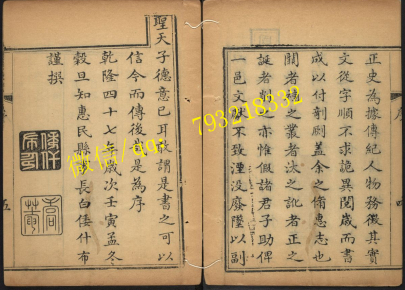 正史為據傳紀人物務徵其實
文從字順不求詭異閱歲而書
成以付剞劂盖余之
志也
闕者
之叢者汰之訛者正之
誕者
之亦惟假諸君子助俾
一邑文獻不致湮没廢墜以副
聖天子德意已耳敢謂是書之可以
信今而傳後哉是為序
乾隆四十七年歲次壬寅孟冬
穀旦知惠民縣事長白倭什布
謹撰
倭什布印
序
四
五
微信/qq: 793218332